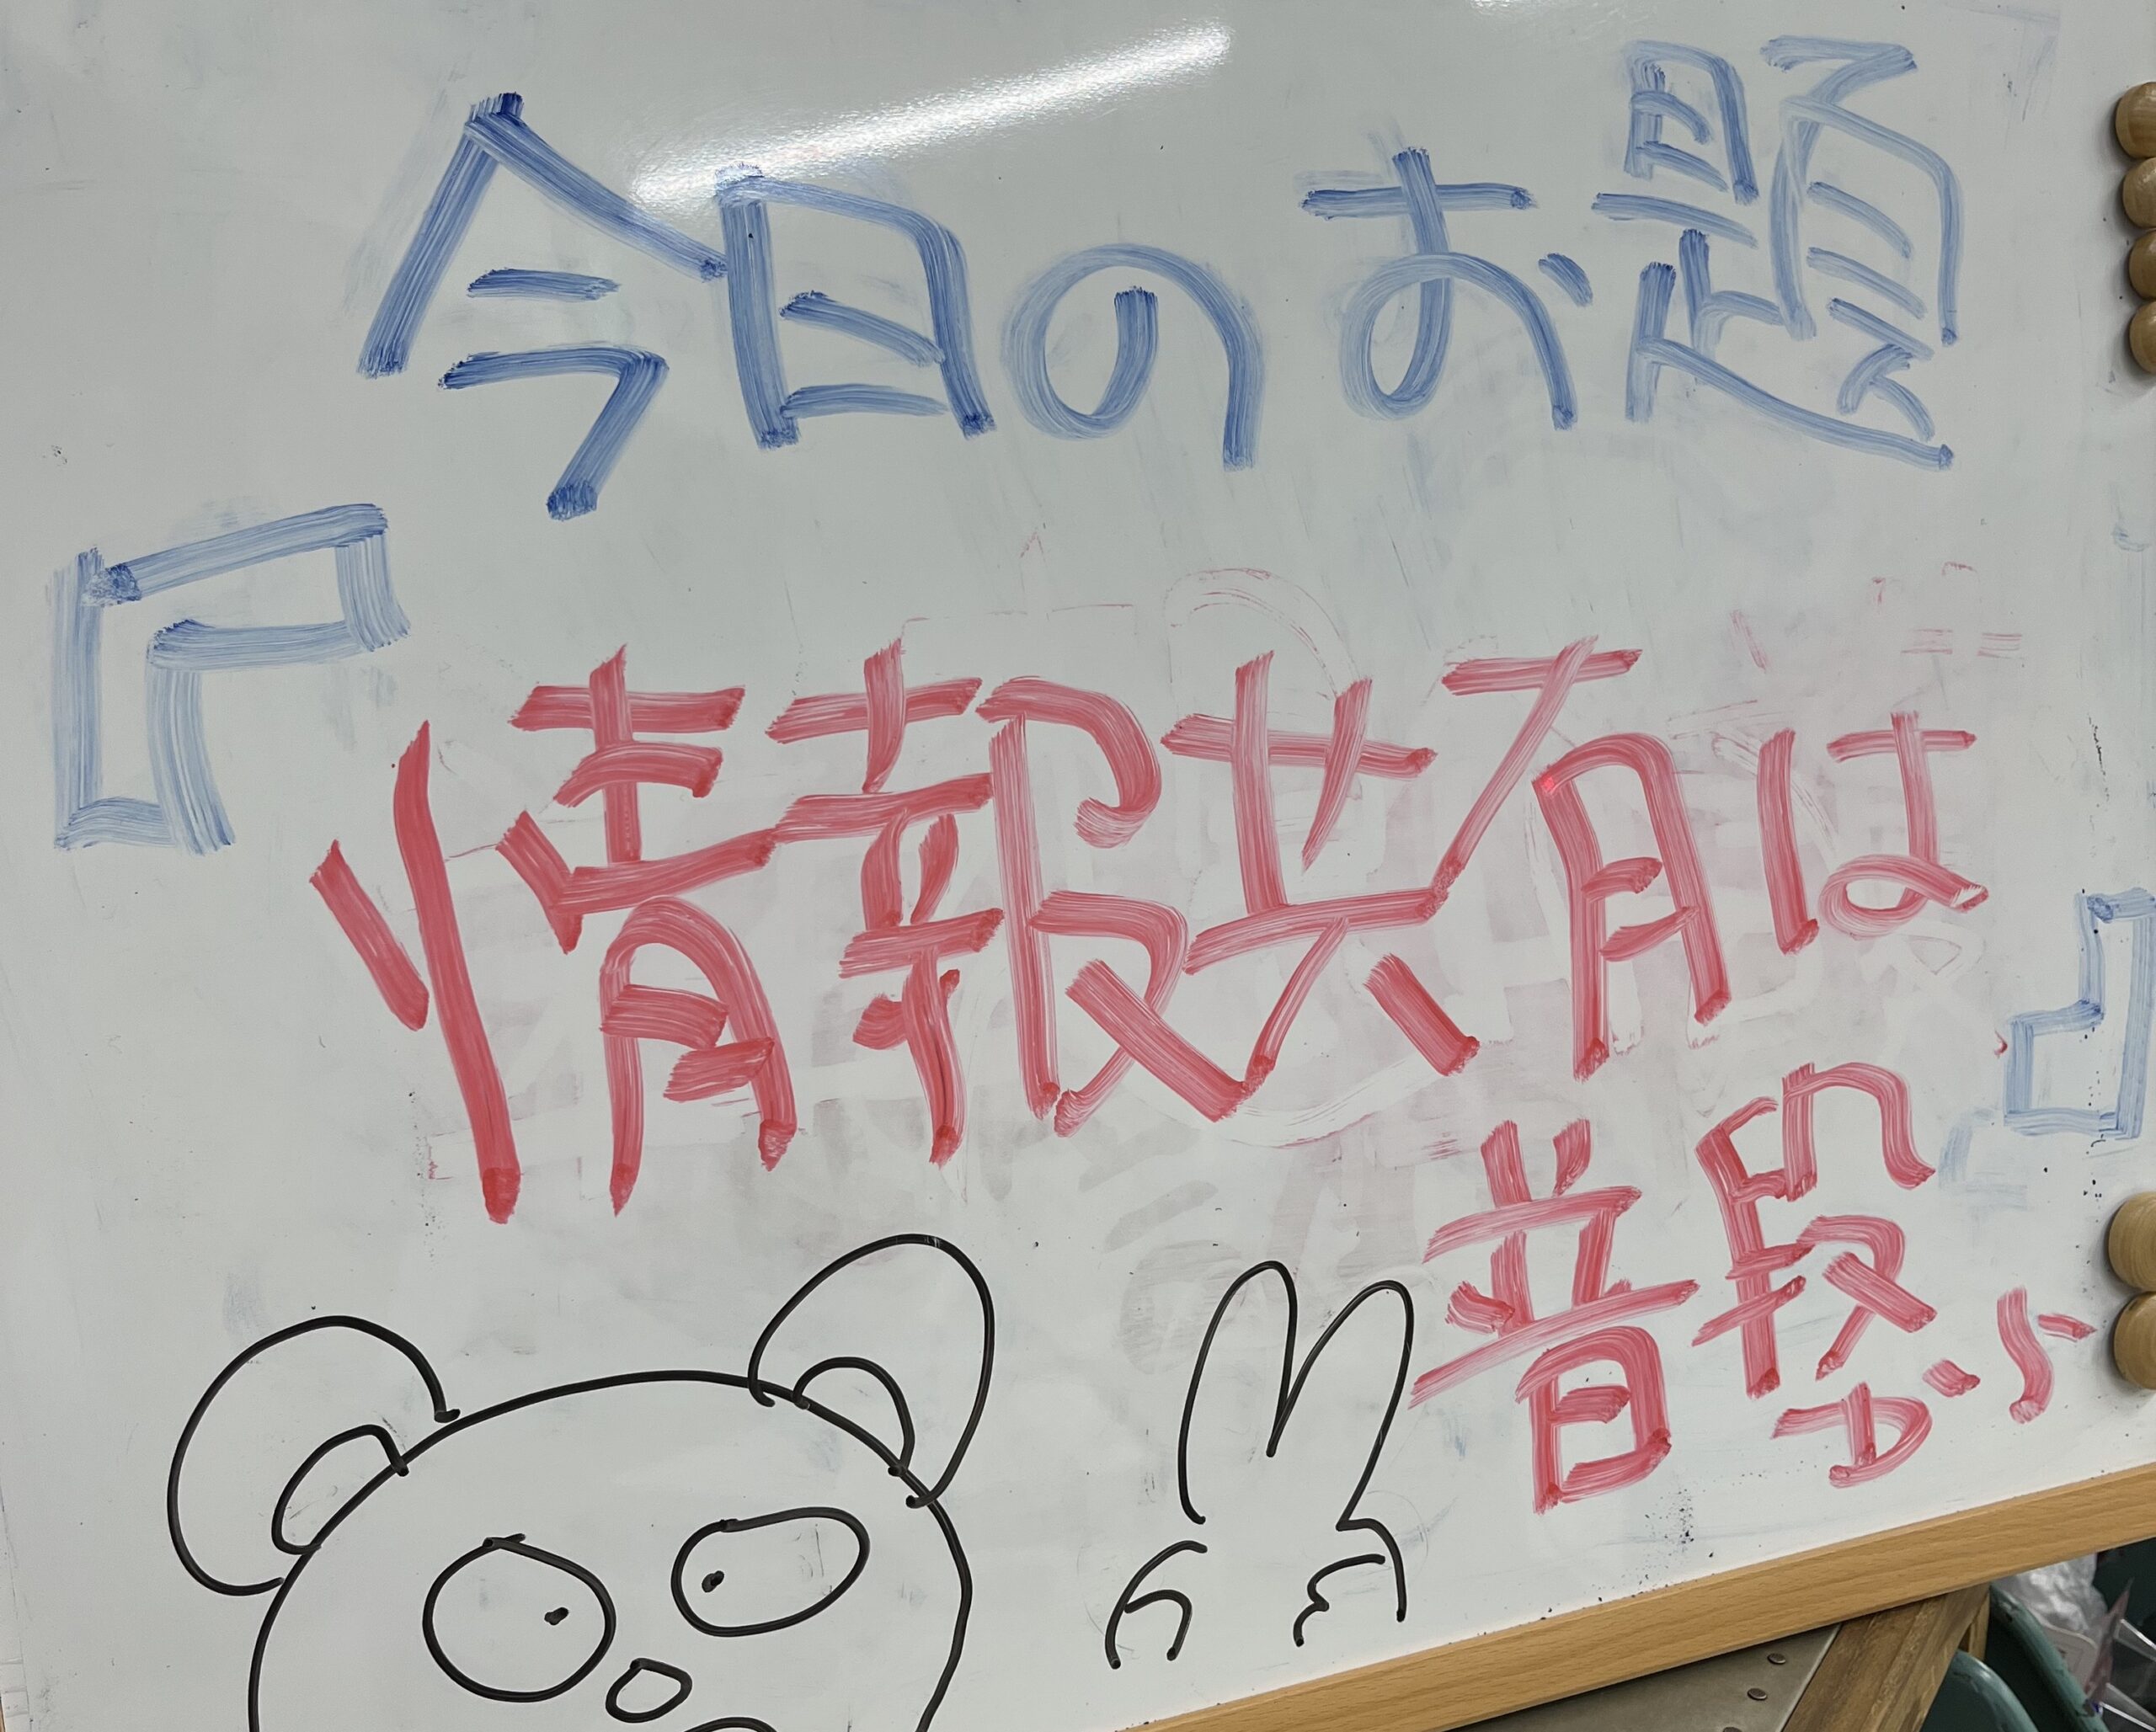 今日のお題
『情報共有は
普段から』